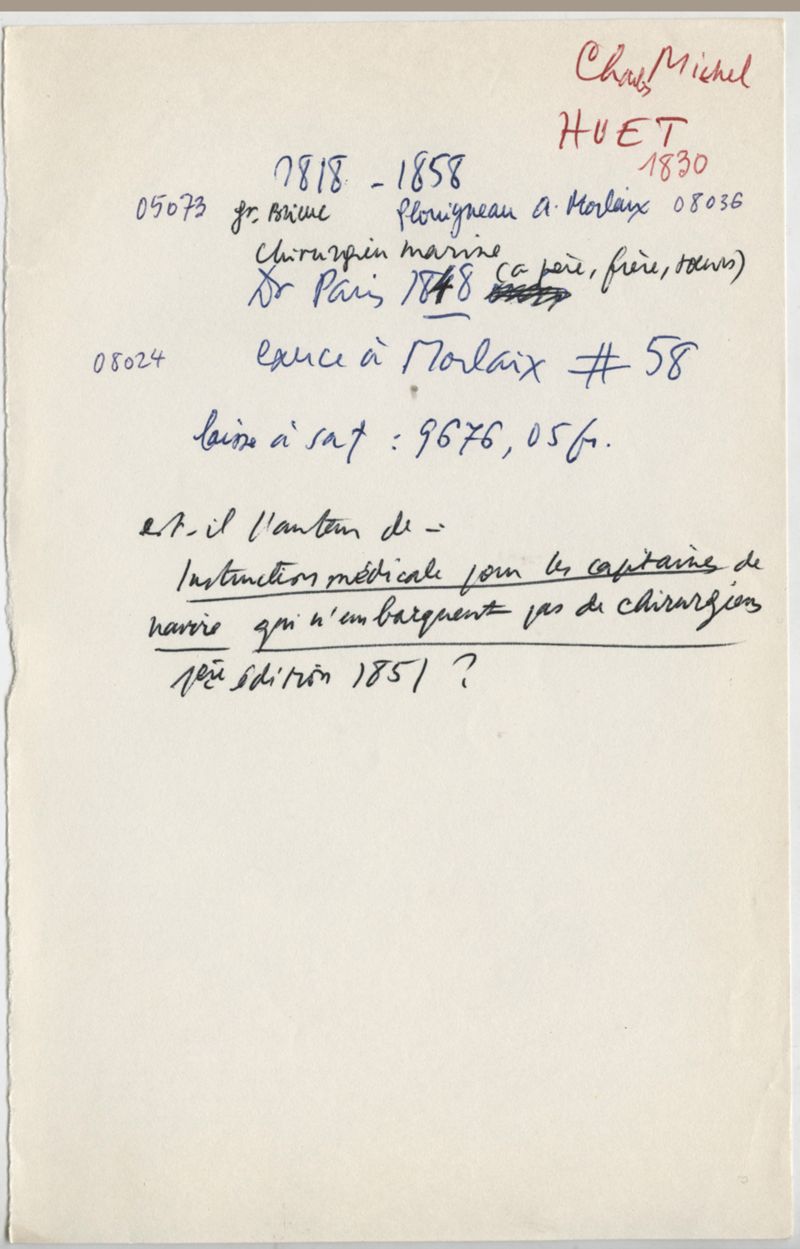 Charles Michel
HUET
1830
1818 - 1858
05073 St. Brieuc Plouigneau A. Morlaix 08036
chirurgien marine
Dr Paris 1848 (a père, frère, sœurs)
08024 exerce à Morlaix # 58
laisse à sa † : 9676,05 fr.
est-il l'auteur de -
Instruction médicale pour les capitaines de
navire qui n'embarquent pas de chirurgiens
1ère édition 1851 ?